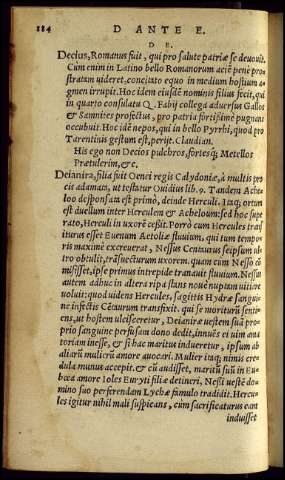 184 D ANTE E.
D E.
Decius, Romanus fuit, qui pro salute patriæ se deuouit.
Cum enim in Latino bello Romanorum aciē penè pro-
stratam uideret, concitato equo in medium hostium a-
gmen irrupit. Hoc idem eiusdē nominis filius fecit, qui
in quarto consulatu Q. Fabij collega aduersus Gallos
& Samnites profectus, pro patria fortißimè pugnans
occubuit. Hoc idē nepos, qui in bello Pyrrhi, quod pro
Tarentinis gestum est, perijt. Claudian.
His ego non Decios pulchros, fortesq́; Metellos
Prætulerim, &c.
Deianira, filia fuit Oenei regis Calydoniæ, à multis pro
cis adamata, ut testatur Ouidius lib. 9. Tandem Ache-
loo desponsata est primò, deinde Herculi. Itaq; ortum
est duellum inter Herculem & Acheloum: sed hoc supe
rato, Herculi in uxorē ceßit. Porrò cum Hercules transf
iturus esset Euenum Aetoliæ fluuium, qui tum tempo-
ris maximè excreuerat, Nessus Centaurus seipsum ul-
tro obtulit, trāsuecturum uxorem. quam cum Nesso cō
misisset, ipse primus intrepide tranauit fluuium. Nessus
autem adhuc in altera ripa stans nouē nuptam uitiare
uoluit: quod uidens Hercules, sagittis Hydræ sangui-
ne infectis Cētaurum transfixit. qui se moriturū senti-
ens, ut hostem ulcisceretur, Deianiræ uestem suā pro-
prio sanguine perfusam dono dedit, innuēs ei uim ama
toriam inesse, & si hac maritus indueretur, ipsum ab
aliarū mulierū amore auocari. Mulier itaq; nimis cre-
dula munus accepit. & cū audisset, maritū suū in Eu-
bœa amore Ioles Euryti filiæ detineri, Neßi uestē do-
mino suo perferendam Lychæ famulo tradidit. Hercu-
les igitur nihil mali suspicans, cum sacrificaturus eam
induisset